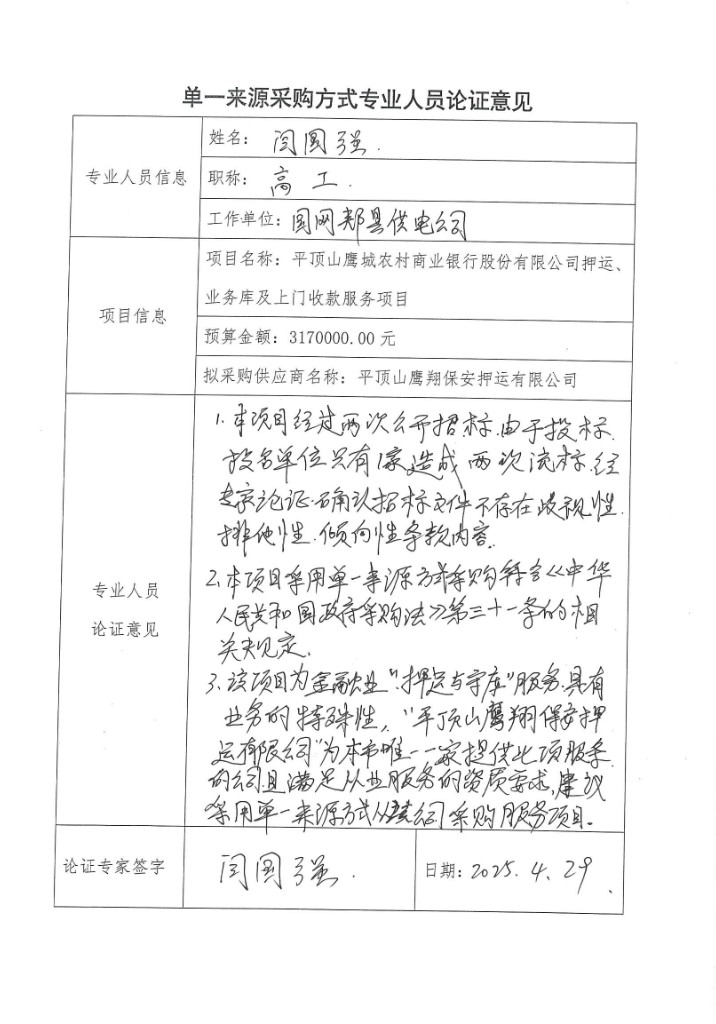 单一来源采购方式专业人员论证意见
专业人员信息
姓名：闫国强.
职称：高工.
工作单位：国网郏县供电公司
项目信息
项目名称：平顶山鹰城农村商业银行股份有限公司押运、
业务库及上门收款服务项目
预算金额：3170000.00 元
拟采购供应商名称：平顶山鹰翔保安押运有限公司
专业人员
论证意见
1.本项目经过两次公开招标,由于投标
投名单位只有1家造成两次流标,经
专家论证.确认招标文件不存在歧视性.
排他性.倾向性条款内容.
2.本项目采用单一来源方式采购符合《中华
人民共和国政府采购法》第三十一条的相
关规定.
3.该项目为金融业“押运与守库”服务.具有
业务的特殊性,“平顶山鹰翔保安押
运有限公司”为本市唯一一家提供此项服务
的公司且满足从业服务的资质要求,建议
采用单一来源方式从该公司采购服务项目。
论证专家签字
闫国强.
日期：2025.4.29.